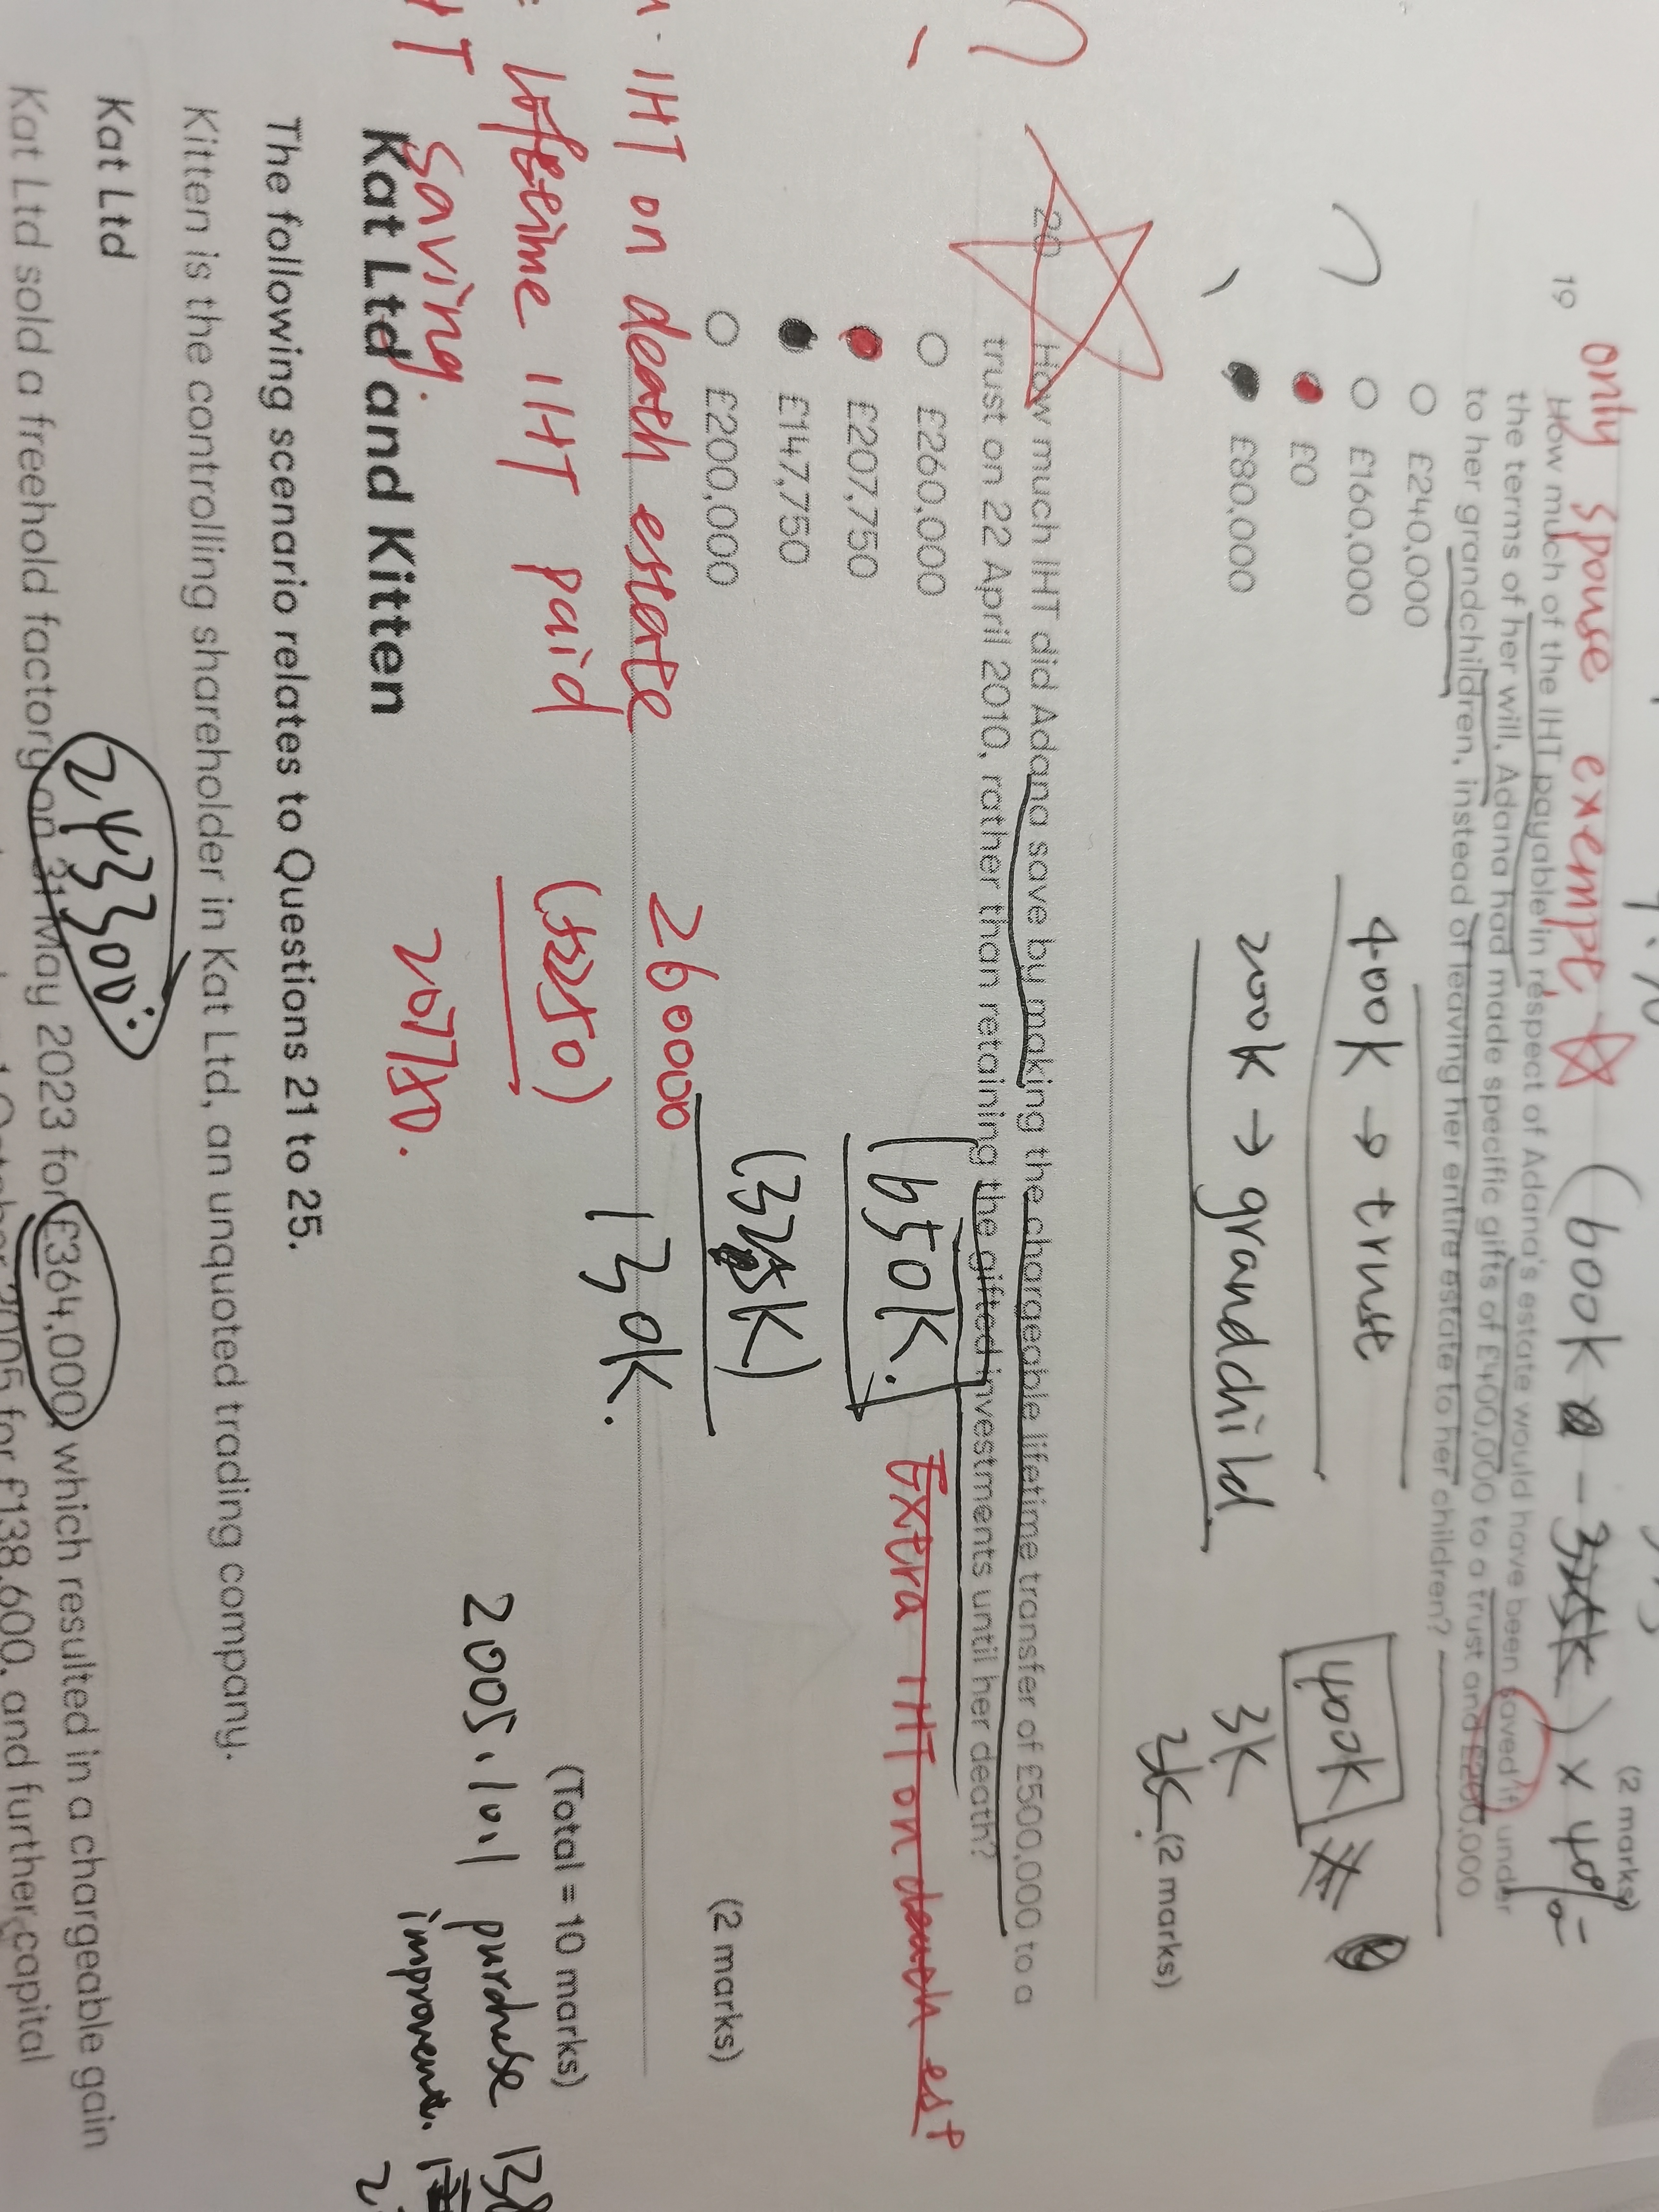 only spouse exempt (600k - 325k) x 40% =
(2 marks)
19 How much of the IHT payable in respect of Adana's estate would have been saved if, under
the terms of her will, Adana had made specific gifts of £400,000 to a trust and £200,000
to her grandchildren, instead of leaving her entire estate to her children?
£240,000
£160,000
£0
£80,000
400k → trust
200k → grandchild
400k
3k
3k
(2 marks)
20 How much IHT did Adana save by making the chargeable lifetime transfer of £500,000 to a
trust on 22 April 2010, rather than retaining the gifted investments until her death?
£260,000
£207,750
£147,750
£200,000
(650k.)
(325k)
130k.
Extra IHT on death est
(2 marks)
IHT on death estate 260000
lifetime IHT paid (52250)
saving 207750.
(Total = 10 marks)
2005.10.1 purchase
improvement.
Kat Ltd and Kitten
The following scenario relates to Questions 21 to 25.
Kitten is the controlling shareholder in Kat Ltd, an unquoted trading company.
243300
Kat Ltd
Kat Ltd sold a freehold factory on 31 May 2023 for £364,000, which resulted in a chargeable gain
October 2005 for £138,600, and further capital